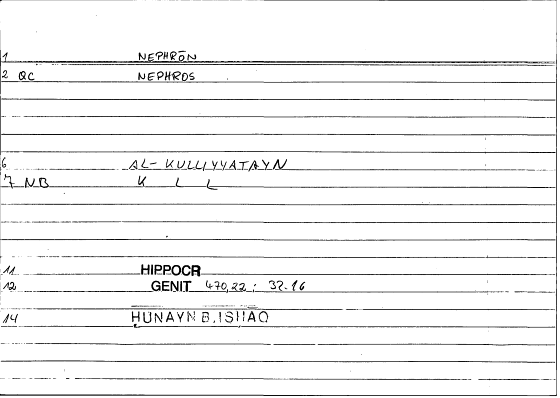 1 NEPHRŌN
2 QC NEPHROS
6 AL-KULLIYYATAYN
7 NB K L L
11 HIPPOCR
12 GENIT 470,22 ; 32.16
14 HUNAYN B.ISHAQ